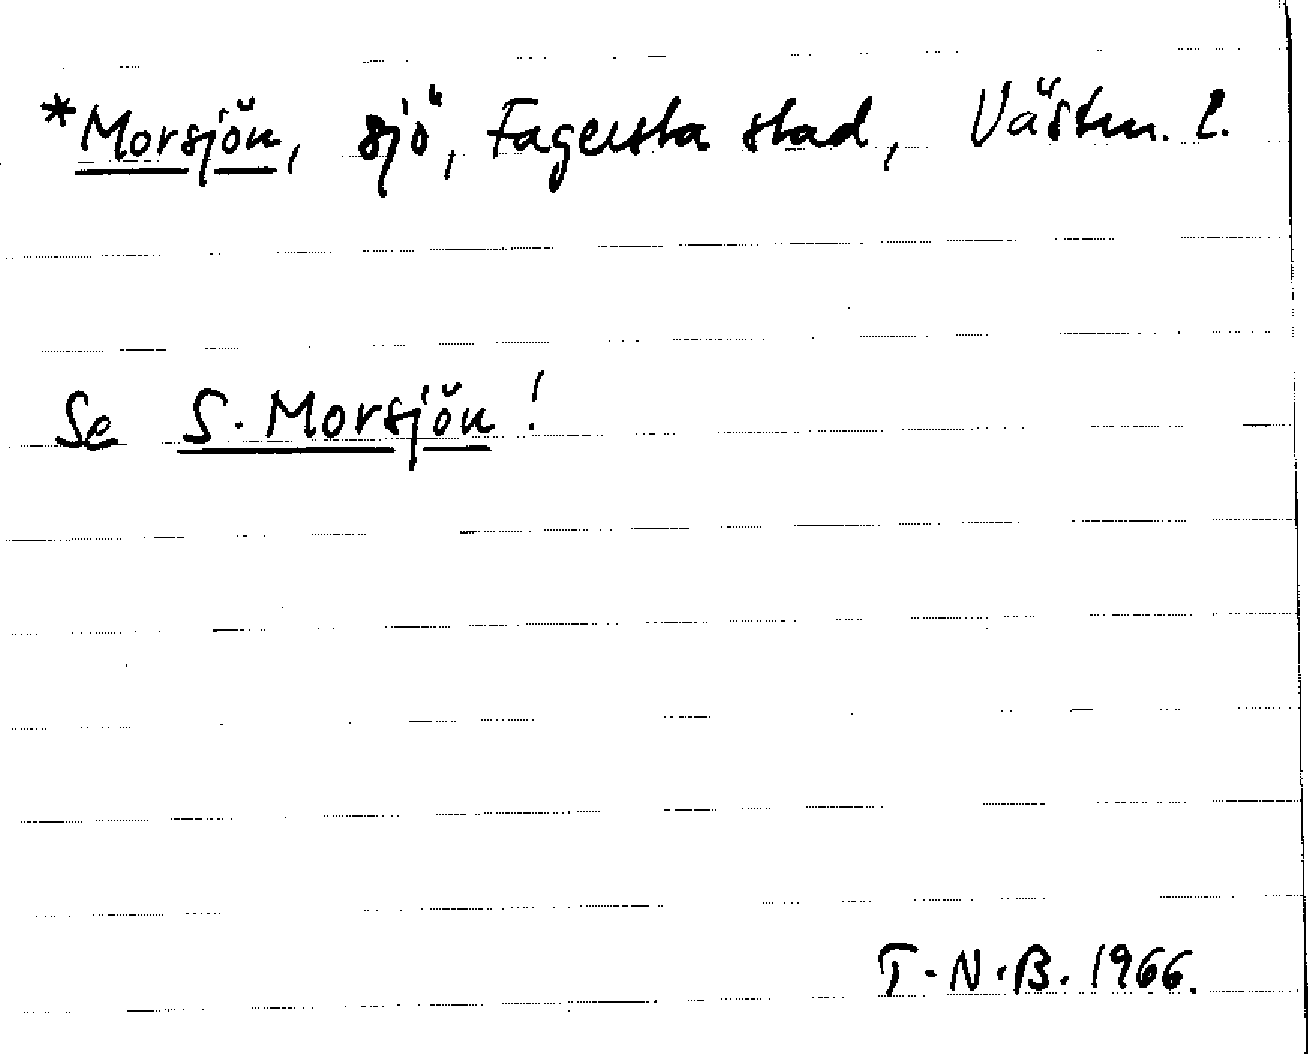 *Morsjön, sjö, Fagersta stad, Västm. l.
Se S. Morsjön!
T.N.B. 1966.